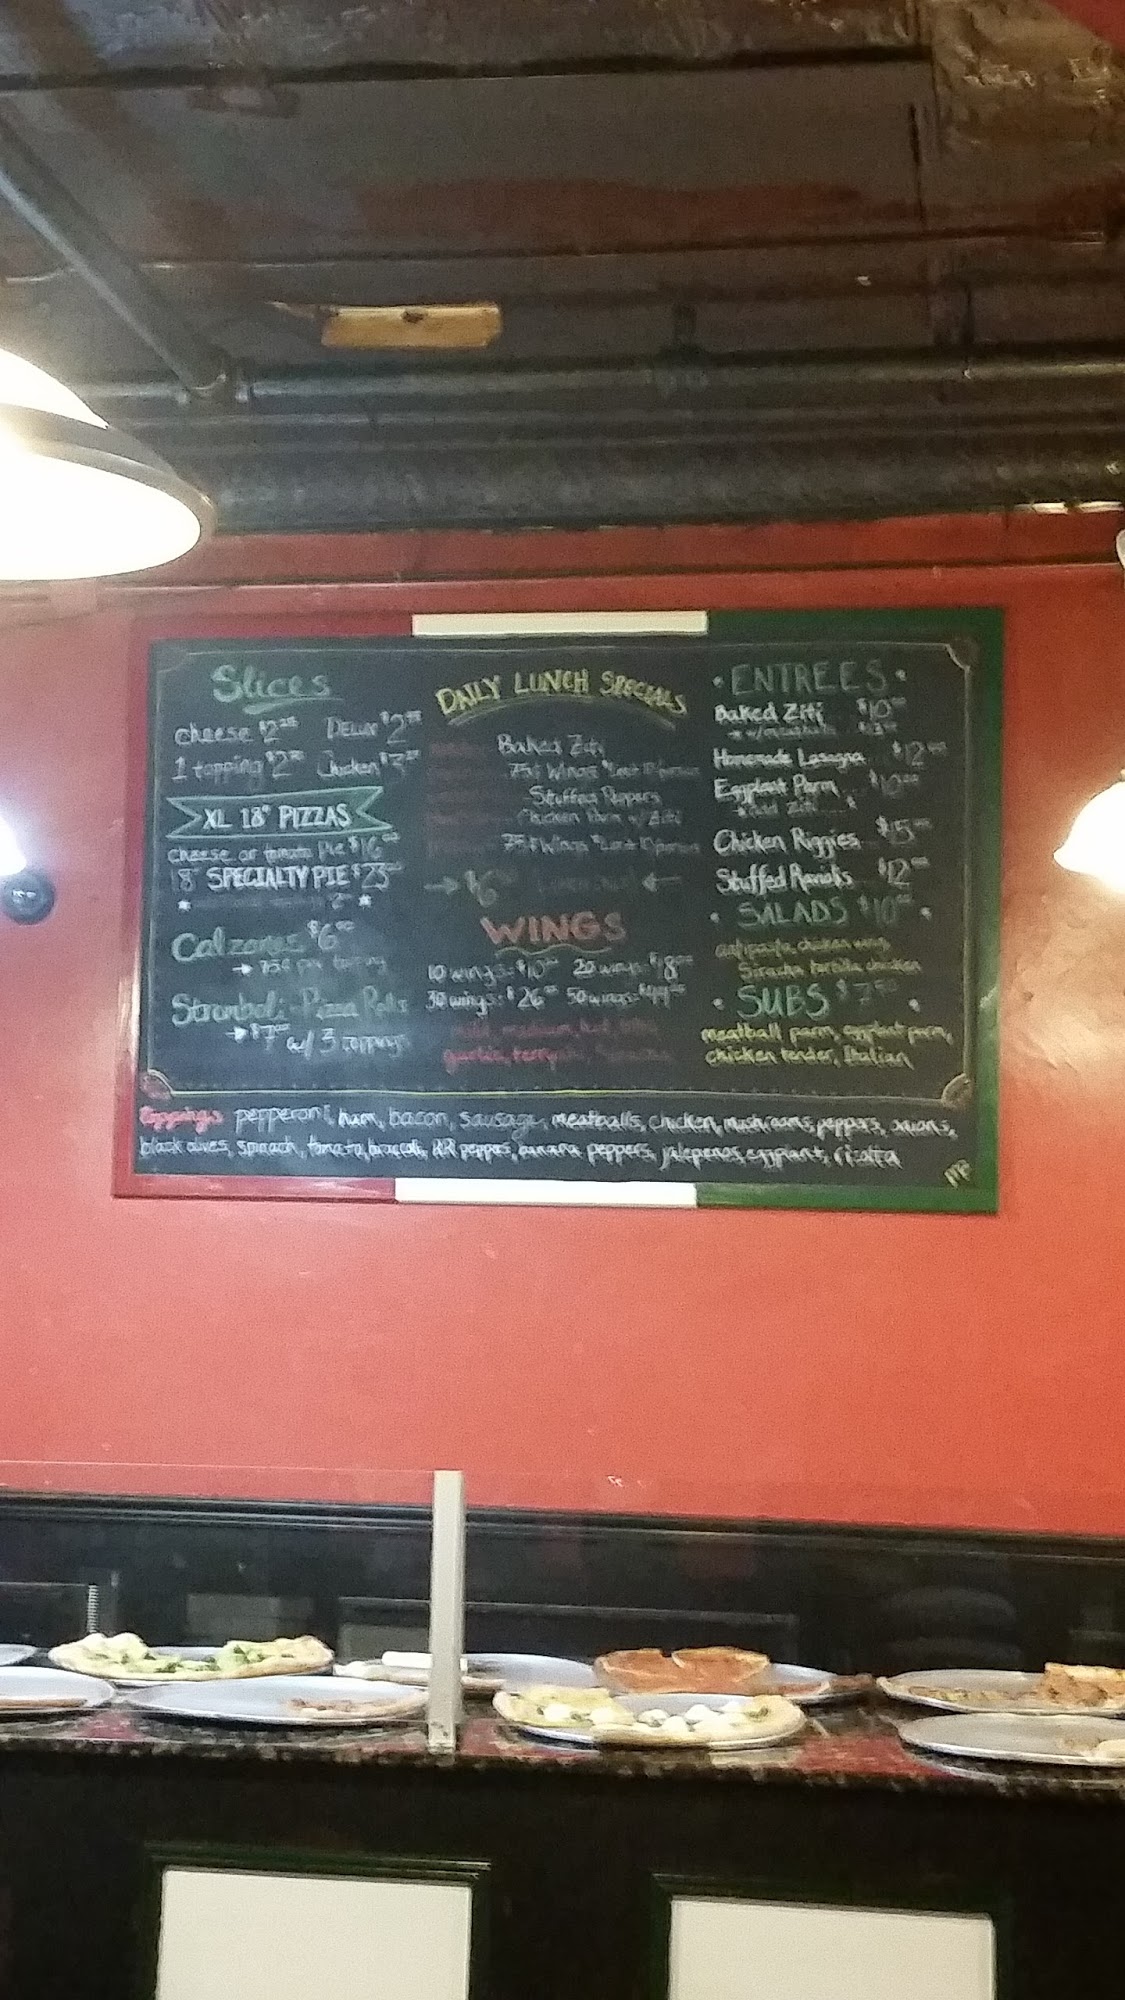 Slices
cheese $2 Deluxe $2
1 topping $2 Chicken $3
XL 18" PIZZAS
cheese or tomato Pie $16
18" SPECIALTY PIE $23
Calzones $6
75¢ per topping
Stromboli-Pizza Rolls
$7 w/ 3 toppings
DAILY LUNCH SPECIALS
Baked Ziti
75¢ Wings
Stuffed Peppers
Chicken Parm w/ Ziti
75¢ Wings
$6
WINGS
10 wings: $10 20 wings: $18
30 wings: $26 50 wings: $44
mild, medium, hot,
garlic,
• ENTREES •
Baked Ziti $10
w/meatballs
Homemade Lasagna $12
Eggplant Parm $10
add Ziti
Chicken Riggies $15
Stuffed Raviolis $12
• SALADS $10 •
antipasto, chicken wing,
Siracha tortilla chicken
• SUBS $7 •
meatball parm, eggplant parm,
chicken tender, Italian
Toppings pepperoni, ham, bacon, sausage, meatballs, chicken, mushrooms, peppers, onions,
black olives, spinach, tomato, broccoli, RR peppers, banana peppers, jalepenos, eggplant, ricotta